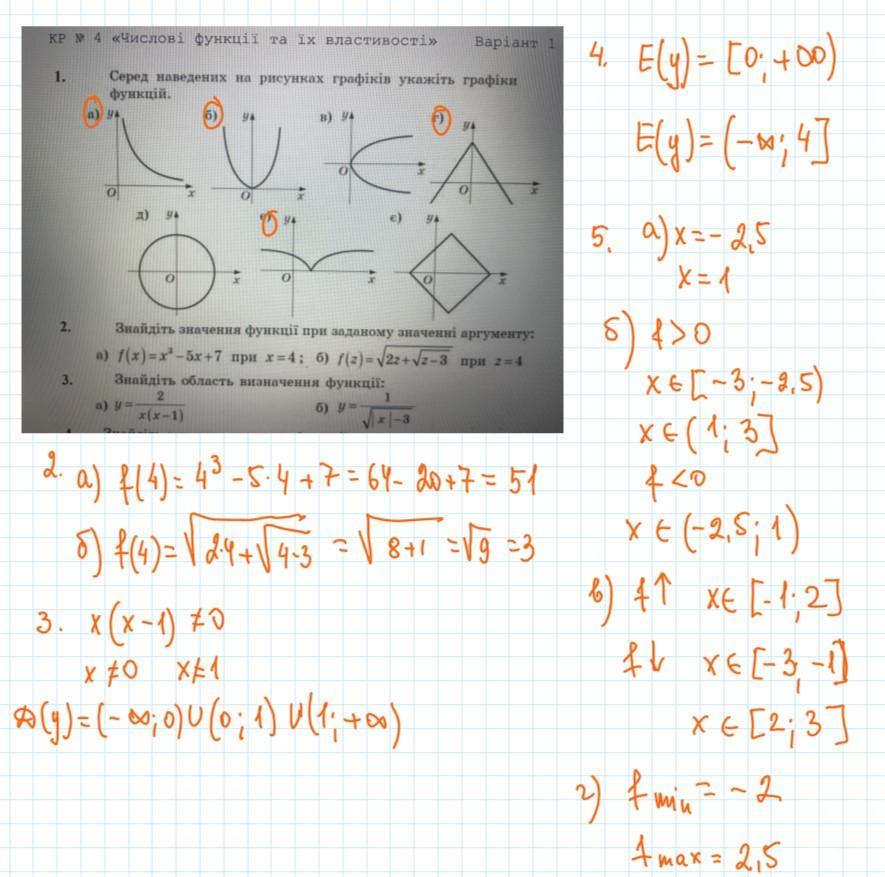 КР № 4 «Числові функції та їх властивості» Варіант 1
1. Серед наведених на рисунках графіків укажіть графіки
функцій.
а) y x O
б) y x O
в) y x O
г) y x O
д) y x O
y x O
є) y x O
2. Знайдіть значення функції при заданому значенні аргументу:
а) f(x)=x³−5x+7 при x=4; б) f(z)=√(2z+√(z−3)) при z=4
3. Знайдіть область визначення функції:
а) y=2/(x(x−1)) б) y=1/√(|x|−3)
2. а) f(4)=4³−5·4+7=64−20+7=51
б) f(4)=√(2·4+√(4-3))=√(8+1)=√9=3
3. x(x−1)≠0
x≠0 x≠1
D(y)=(−∞;0)∪(0;1)∪(1;+∞)
4. E(y)=[0;+∞)
E(y)=(−∞;4]
5. а) x=−2,5
x=1
б) f>0
x∈[−3;−2,5)
x∈(1;3]
f<0
x∈(−2,5;1)
в) f↑ x∈[-1;2]
f↓ x∈[−3,−1]
x∈[2;3]
г) f min=−2
f max=2,5